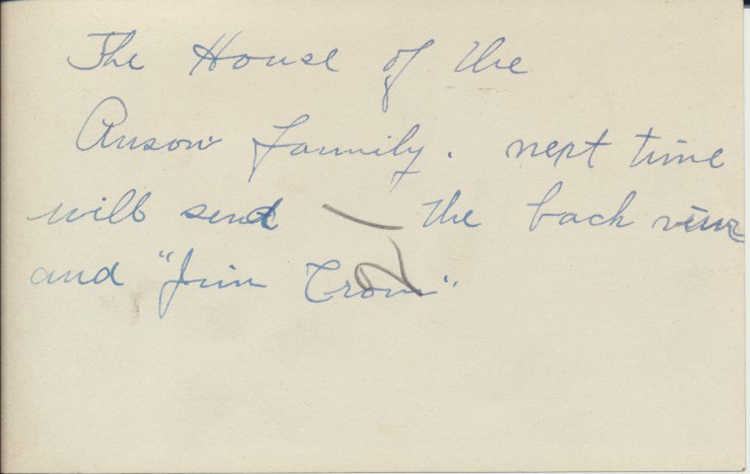 The House of the
Anson family. next time
will send the back view
and "Jim Crow"